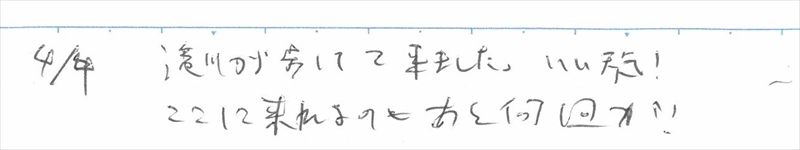 4/4 川から歩いて来ました。いい天気!
ここに来れるのもあと何回か!!